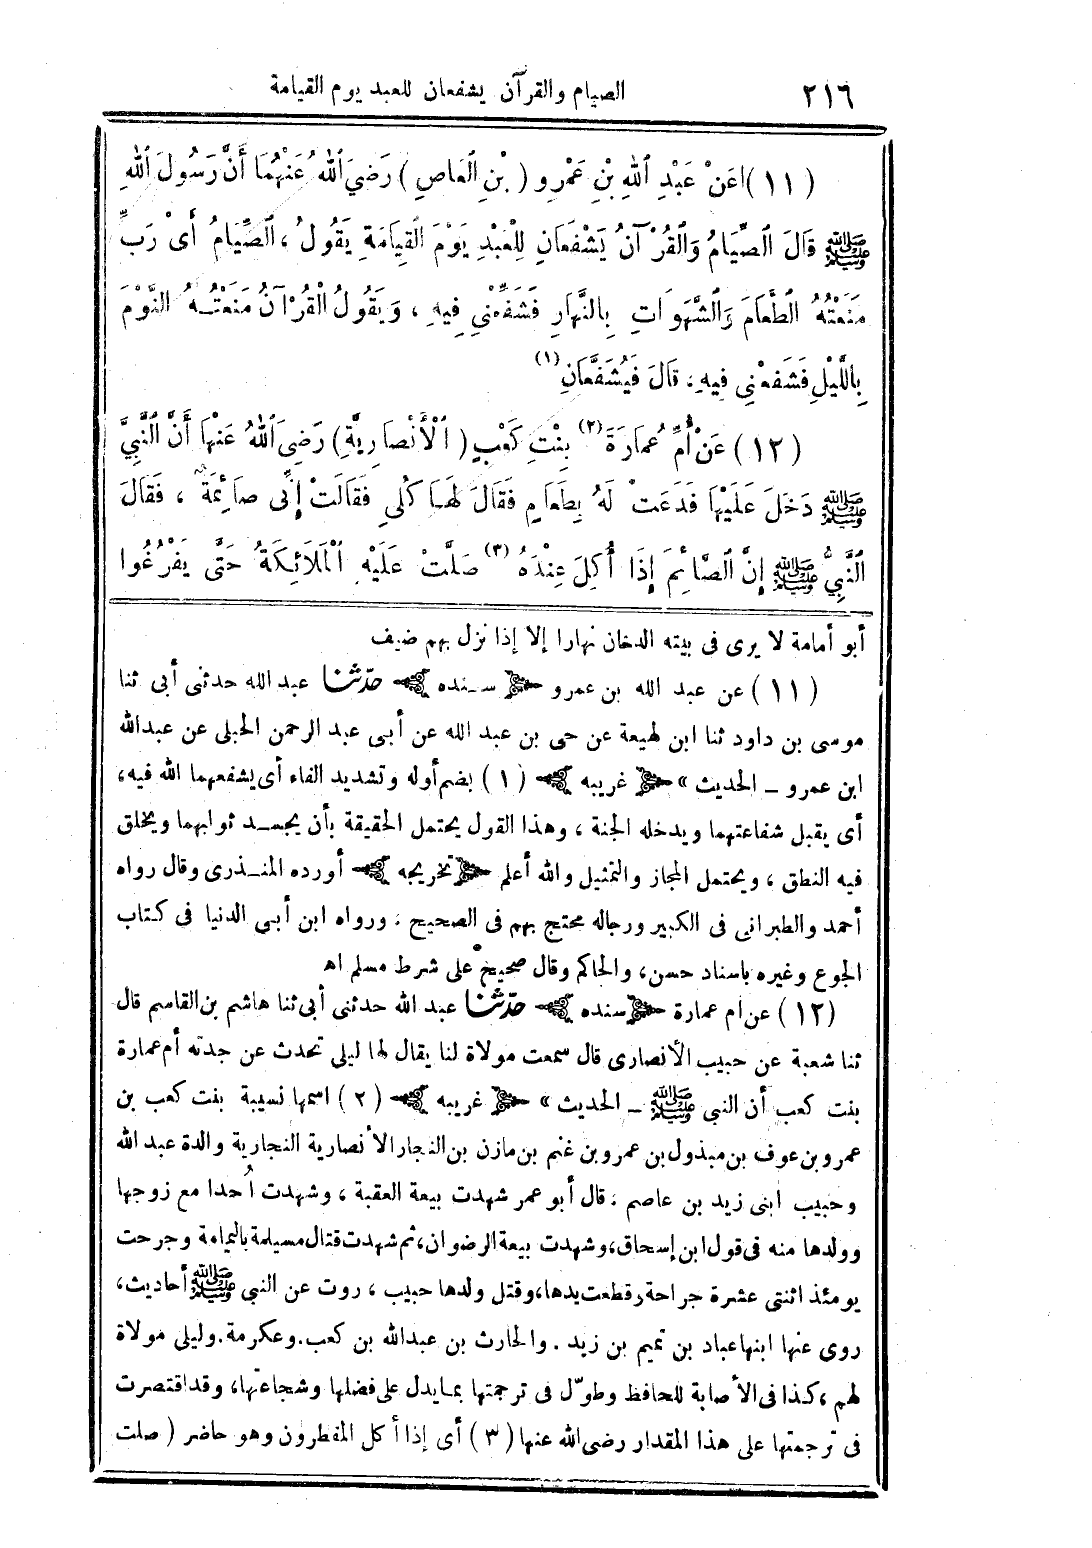 ٢١٦ الصيام والقرآن يشفعان للعبد يوم القيامة
(١١) عَنْ عَبْدِ اللهِ بْنِ عَمْرٍو (بْنِ الْعَاصِ) رَضِيَ اللهُ عَنْهُمَا أَنَّ رَسُولَ اللهِ
ﷺ قَالَ الصِّيَامُ وَالْقُرْآنُ يَشْفَعَانِ لِلْعَبْدِ يَوْمَ الْقِيَامَةِ يَقُولُ، الصِّيَامُ أَىْ رَبِّ
مَنَعْتُهُ الطَّعَامَ وَالشَّهَوَاتِ بِالنَّهَارِ فَشَفِّعْنِي فِيهِ، وَيَقُولُ الْقُرْآنُ مَنَعْتُهُ النَّوْمَ
بِاللَّيْلِ فَشَفِّعْنِي فِيهِ، قَالَ فَيُشَفَّعَانِ (١)
(١٢) عَنْ أُمِّ عُمَارَةَ (٢) بِنْتِ كَعْبٍ (الْأَنْصَارِيَّةِ) رَضِيَ اللهُ عَنْهَا أَنَّ النَّبِيَّ
ﷺ دَخَلَ عَلَيْهَا فَدَعَتْ لَهُ بِطَعَامٍ فَقَالَ لَهَا كُلِي فَقَالَتْ إِنِّي صَائِمَةٌ، فَقَالَ
النَّبِيُّ ﷺ إِنَّ الصَّائِمَ إِذَا أُكِلَ عِنْدَهُ (٣) صَلَّتْ عَلَيْهِ الْمَلَائِكَةُ حَتَّى يَفْرُغُوا
أبو أمامة لا يرى فى بيته الدخان نهارا إلا إذا نزل بهم ضيف
(١١) عن عبد الله بن عمرو ﴿سنده﴾ حدّثنا عبد الله حدثنى أبى ثنا
موسى بن داود ثنا ابن لهيعة عن حى بن عبد الله عن أبى عبد الرحمن الحبلى عن عبدالله
ابن عمرو ــ الحديث» ﴿غريبه﴾ (١) بضم أوله وتشديد الفاء أى يشفعهما الله فيه،
أى يقبل شفاعتهما ويدخله الجنة، وهذا القول يحتمل الحقيقة بأن يجسد ثوابهما ويخلق
فيه النطق، ويحتمل المجاز والتمثيل والله أعلم ﴿تخريجه﴾ أورده المنذرى وقال رواه
أحمد والطبرانى فى الكبير ورجاله محتج بهم فى الصحيح. ورواه ابن أبى الدنيا فى كتاب
الجوع وغيره باسناد حسن، والحاكم وقال صحيح على شرط مسلم اه
(١٢) عن أم عمارة ﴿سنده﴾ حدّثنا عبد الله حدثنى أبى ثنا هاشم بن القاسم قال
ثنا شعبة عن حبيب الأنصارى قال سمعت مولاة لنا يقال لها ليلى تحدث عن جدته أم عمارة
بنت كعب أن النبى ﷺ ــ الحديث» ﴿غريبه﴾ (٢) اسمها نسيبة بنت كعب بن
عمرو بن عوف بن مبذول بن عمرو بن غنم بن مازن بن النجار الأنصارية النجارية والدة عبد الله
وحبيب ابنى زيد بن عاصم. قال أبو عمر شهدت بيعة العقبة، وشهدت أُحدا مع زوجها
وولدها منه فى قول ابن إسحاق، وشهدت بيعة الرضوان، ثم شهدت قتال مسيلمة باليمامة وجرحت
يومئذ اثنتى عشرة جراحة وقطعت يدها، وقتل ولدها حبيب، روت عن النبى ﷺ أحاديث،
روى عنها ابنها عباد بن تميم بن زيد. والحارث بن عبدالله بن كعب. وعكرمة. وليلى مولاة
لهم، كذا فى الأصابة للحافظ وطوّل فى ترجمتها بما يدل على فضلها وشجاعتها، وقد اقتصرت
فى ترجمتها على هذا المقدار رضى الله عنها (٣) أى إذا أكل المفطرون وهو حاضر (صلت